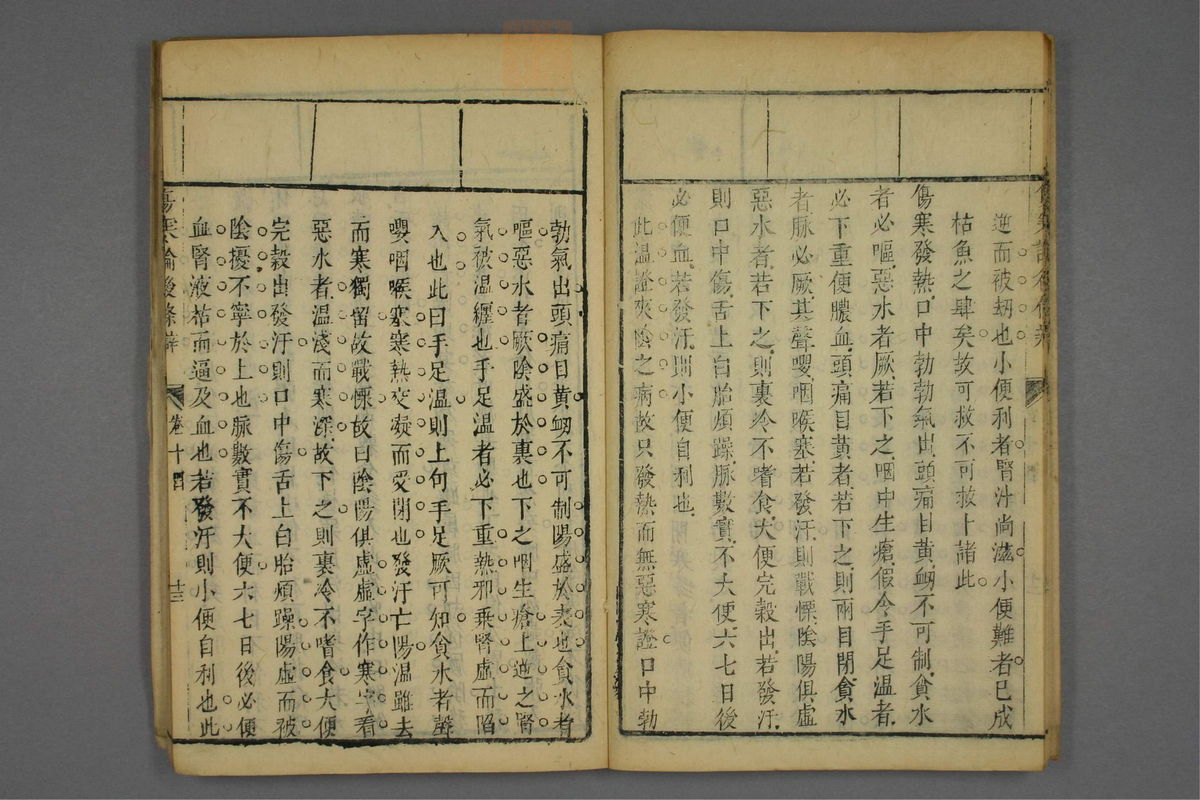 逆而被刼也小便利者腎汁尚滋小便難者已成
枯魚之肆矣故可救不可救卜諸此
傷寒發熱口中勃勃氣出頭痛目黃衂不可制貪水
者必嘔惡水者厥若下之咽中生瘡假令手足溫者
必下重便膿血頭痛目黃者若下之則兩目閉貪水
者脉必厥其聲嚶咽喉塞若發汗則戰慄陰陽俱虛
惡水者若下之則裏冷不嗜食大便完穀出若發汗
則口中傷舌上白胎煩躁脈數實不大便六七日後
必便血若發汗則小便自利也
此溫證夾陰之病故只發熱而無惡寒證口中勃
勃氣出頭痛目黃衂不可制陽盛於表也貪水者
嘔惡水者厥陰盛於裏也下之咽生瘡上逆之腎
氣被溫纏也手足溫者必下重熱邪乗腎虛而陷
入也此曰手足溫則上句手足厥可知貪水者聲
嚶咽喉塞寒熱交凝而受閉也發汗亡陽溫雖去
而寒獨留故戰慄故曰陰陽俱虛虛字作寒字看
惡水者溫淺而寒深故下之則裏冷不嗜食大便
完穀出發汗則口中傷舌上白胎煩躁陽虛而被
陰擾不寧於上也脈數實不大便六七日後必便
血腎液枯而逼及血也若發汗則小便自利也此
傷寒論後條辯
卷十四
十三